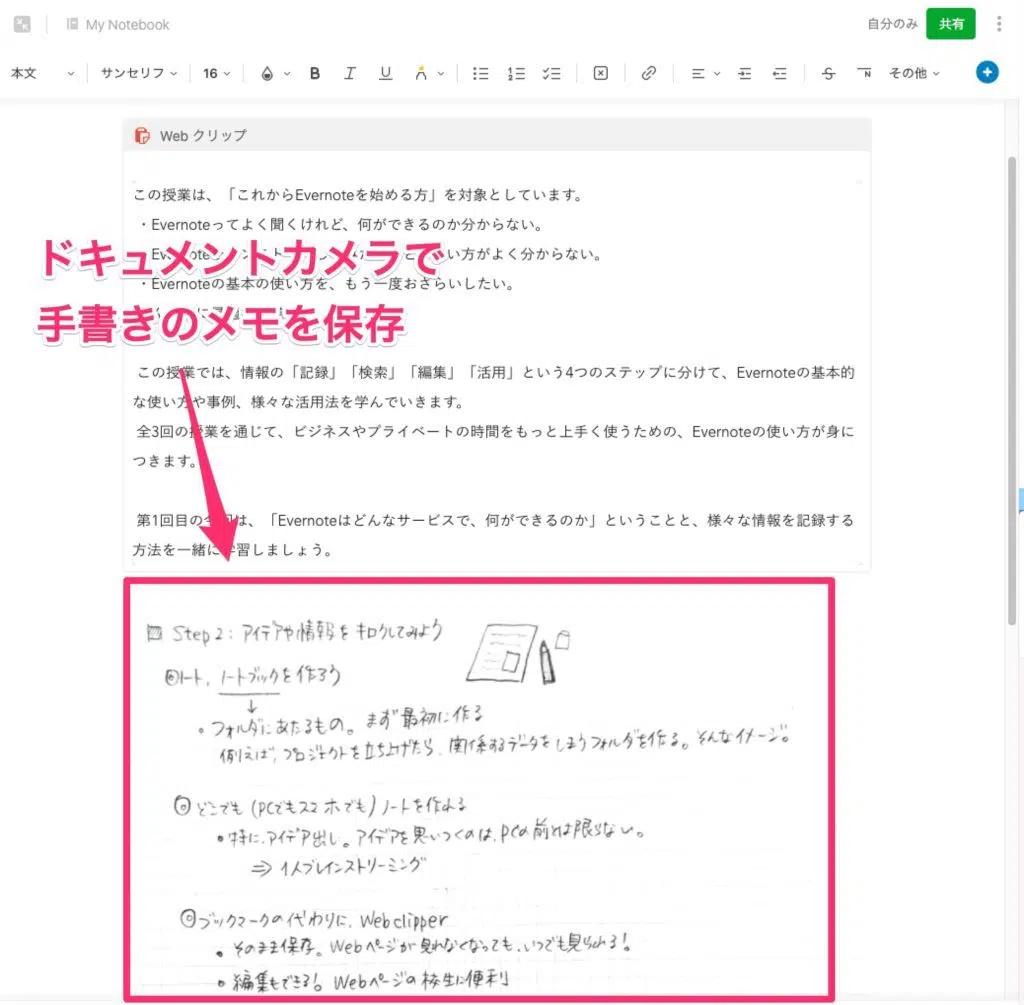 My Notebook
自分のみ
共有
本文
サンセリフ
16
B
I
U
その他
Web クリップ
この授業は、「これからEvernoteを始める方」を対象としています。
・Evernoteってよく聞くけれど、何ができるのか分からない。
ドキュメントカメラで
い方がよく分からない。
・Evernoteの基本の使い方を、もう一度おさらいしたい。
手書きのメモを保存
この授業では、情報の「記録」「検索」「編集」「活用」という4つのステップに分けて、Evernoteの基本的
な使い方や事例、様々な活用法を学んでいきます。
全3回の授業を通じて、ビジネスやプライベートの時間をもっと上手く使うための、Evernoteの使い方が身に
つきます。
第1回目の今回は、「Evernoteはどんなサービスで、何ができるのか」ということと、様々な情報を記録する
方法を一緒に学習しましょう。
Step 2: アイデアや情報をキロクしてみよう
◎ノート、ノートブックを作ろう
↓
・フォルダにあたるもの。まず最初に作る
例えば、プロジェクトを立ち上げたら、関係するデータをしまうフォルダを作る。そんなイメージ。
◎どこでも (PCでもスマホでも) ノートを作れる
・特に、アイデア出し。アイデアを思いつくのは、PCの前とは限らない。
⇒ 1人ブレインストリーミング
◎ブックマークの代わりに、Web clipper
・そのまま保存。Webページが見れなくなっても、いつでも見られる!
・編集もできる! Webページの校生に便利